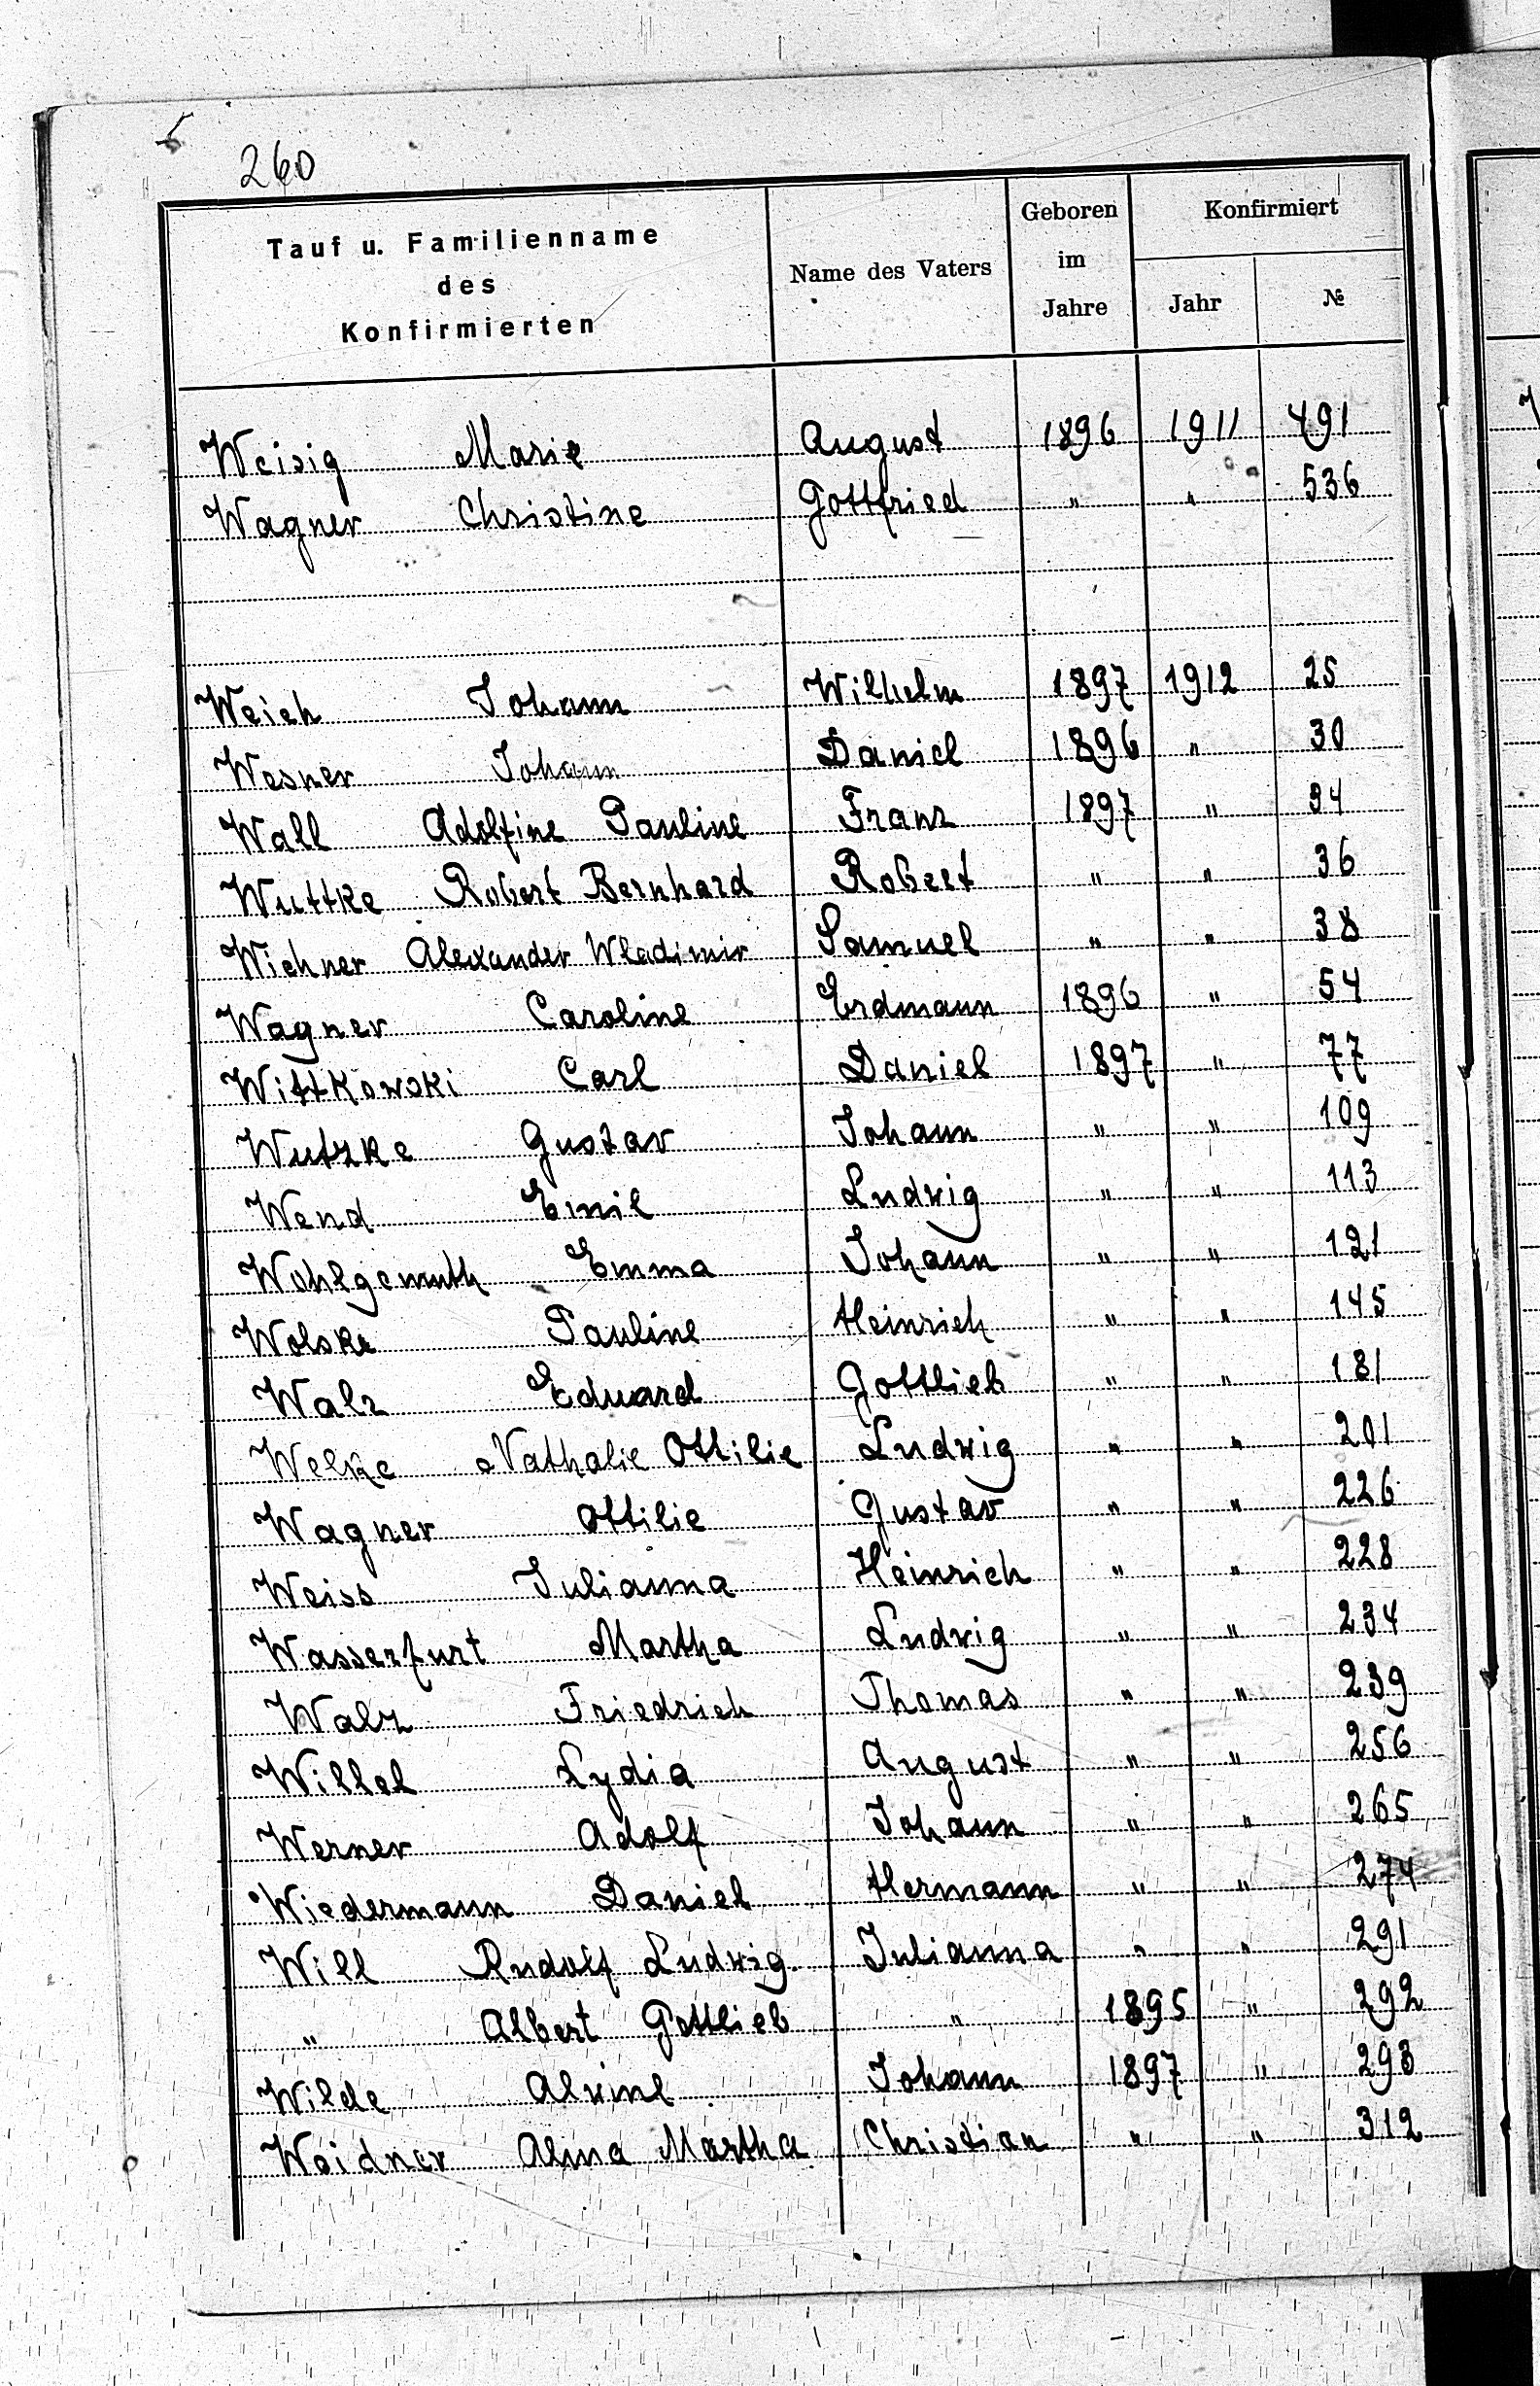 260
Tauf u. Familienname
des
Konfirmierten
Name des Vaters
Geboren
im
Jahre
Konfirmiert
Jahr
№
Weisig Marie August 1896 1911 491
Wagner Christine Gottfried " " 536
Weich Johann Wilhelm 1897 1912 25
Wesner Johann Daniel 1896 " 30
Wall Adolfine Pauline Franz 1897 " 34
Wuttke Robert Bernhard Robert " " 36
Wichner Alexander Wladimir Samuel " " 38
Wagner Caroline Erdmann 1896 " 54
Wittkowski Carl Daniel 1897 " 77
Wutzke Gustav Johann " " 109
Wend Emil Ludwig " " 113
Wohlgemuth Emma Johann " " 121
Wolske Pauline Heinrich " " 145
Walz Eduard Gottlieb " " 181
Welke Nathalie Ottilie Ludwig " " 201
Wagner Ottilie Gustav " " 226
Weiss Julianna Heinrich " " 228
Wasserfurt Martha Ludwig " " 234
Walz Friedrich Thomas " " 239
Willel Lydia August " " 256
Werner Adolf Johann " " 265
Wiedermann Daniel Hermann " " 274
Will Rudolf Ludwig Julianna " " 291
" Albert Gottlieb " 1895 " 292
Wilde Alwine Johann 1897 " 293
Weidner Alma Martha Christian " " 312